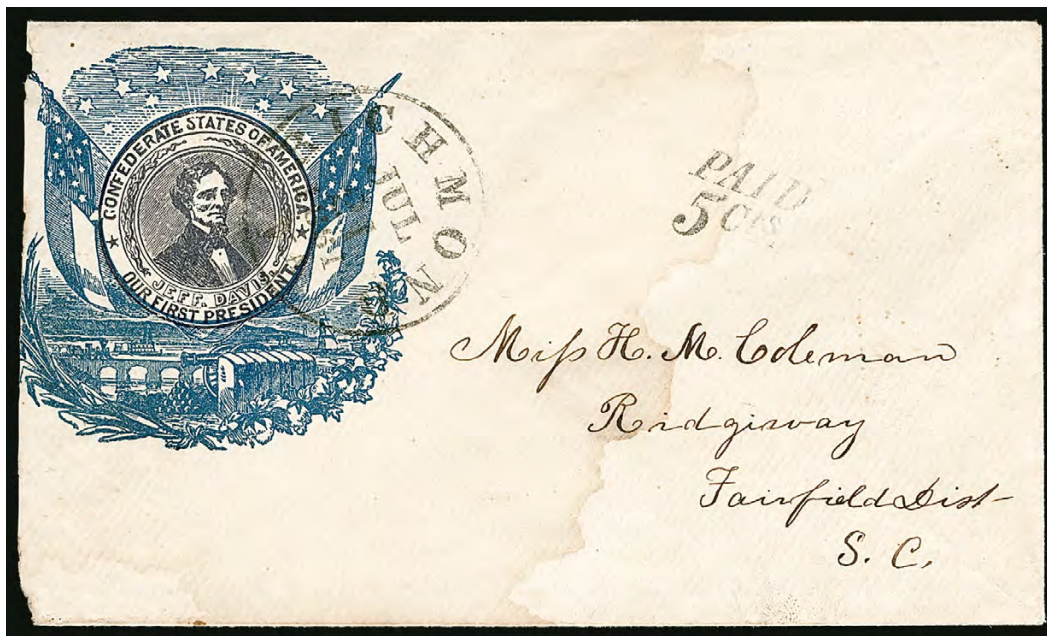 CONFEDERATE STATES OF AMERICA.
JEFF. DAVIS.
OUR FIRST PRESIDENT.
RICHMOND
JUL
PAID
5 Cts
Miss H. M. Coleman
Ridgiway
Fairfield Dist
S. C.